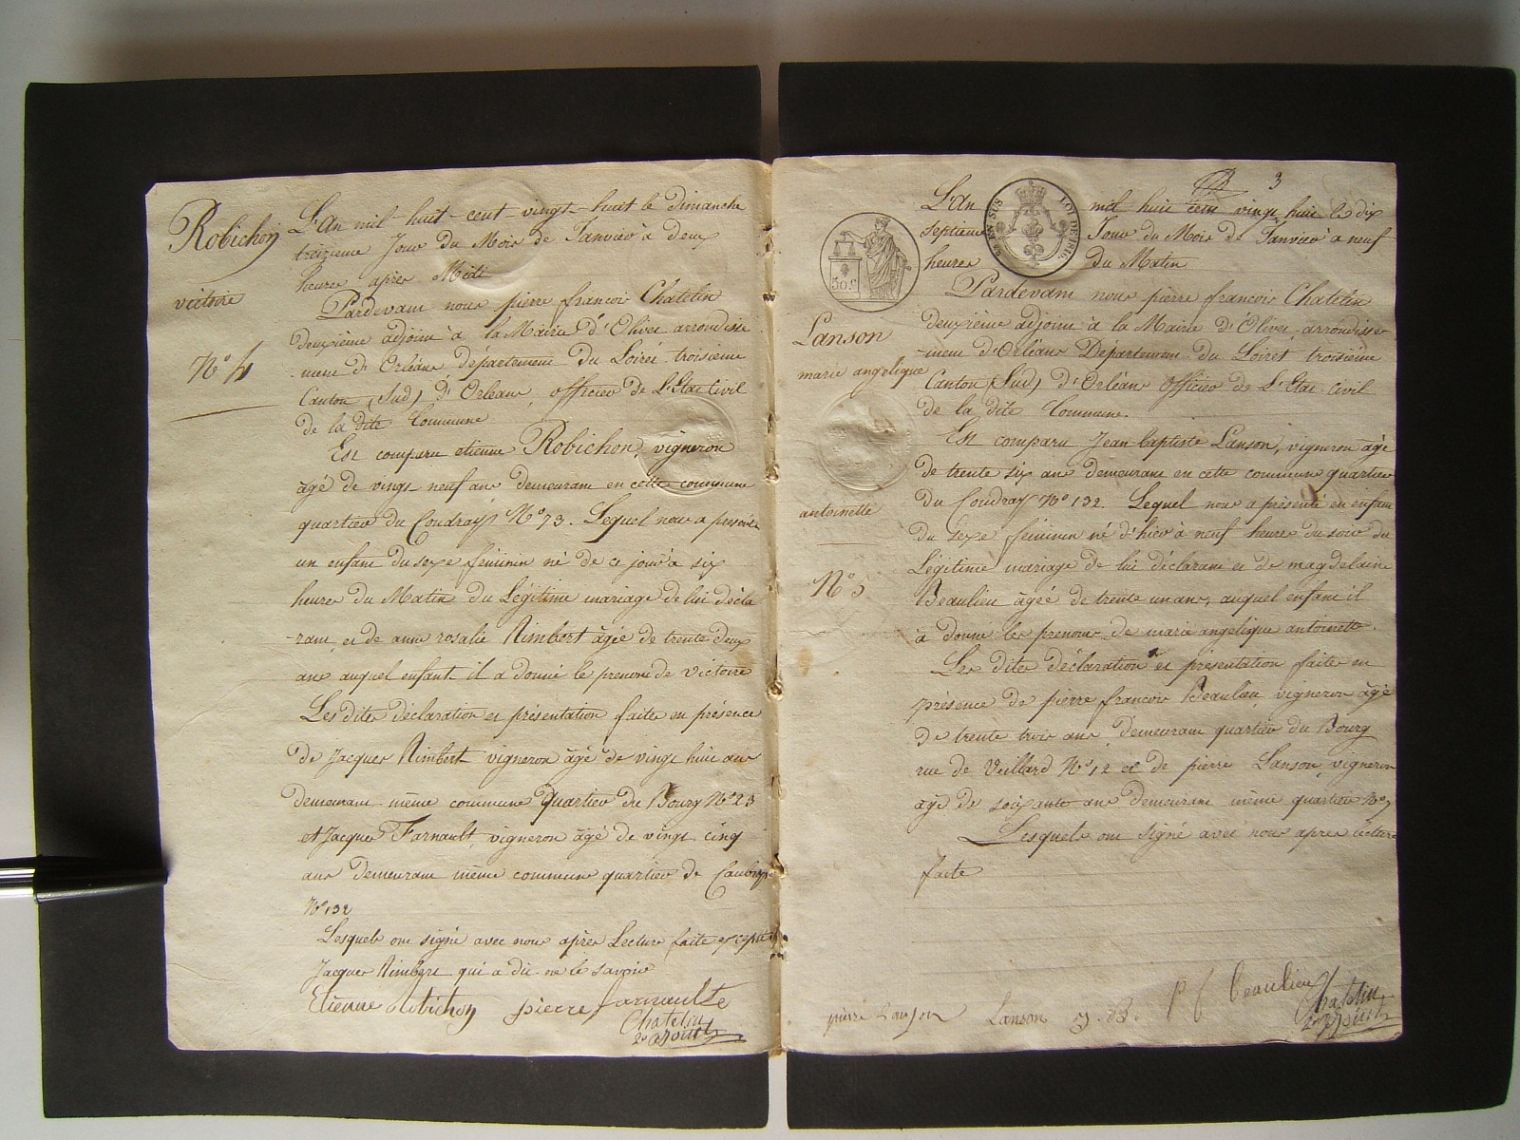 Robichon
victoire
N.° 4
L'An mil huit cent vingt huit le dimanche
treizieme Jour du Mois de Janvier à deux
heures après Midi
Pardevant nous pierre françois Chatelin
deuxième adjoint à la Mairie d'Olivet arrondisse
-ment d'Orléans département du Loiret troisieme
Canton (Sud) d'Orléans officier de L'Etat Civil
de la dite Commune
Est comparu etienne Robichon, vigneron
âgé de vingt neuf ans demeurant en cette commune
quartier du Coudray N.° 73. Lequel nous a présenté
un enfant du sexe féminin né de ce jour à six
heures du Matin du Légitime mariage de lui décla
-rant et de anne rosalie Rimbert âgée de trente deux
ans auquel enfant il a donné le prenom de Victoire
Les dites déclaration et présentation faites en présence
de Jacques Rimbert vigneron âgé de vingt huit ans
demeurant même commune quartier du Bourg N.° 23
et Jacques Farnault, vigneron âgé de vingt cinq
ans demeurant même commune quartier de
N.° 132
Lesquels ont signé avec nous après Lecture faite excepté
Jacques Rimbert qui a dit ne le savoir
Etienne Robichon pierre farnault
Chatelin
2e adjoint
3
50 c.
EN SUS
LOI DE 1816
Lanson
marie angelique
antoinette
N.° 5
L'An mil huit cent vingt huit le dix
septieme Jour du Mois de Janvier à neuf
heures du Matin
Pardevant nous pierre françois Chatelin
deuxième adjoint à la Mairie d'Olivet arrondisse
-ment d'Orléans Département du Loiret troisieme
Canton (Sud) d'Orléans officier de L'Etat Civil
de la dite Commune.
Est comparu Jean baptiste Lanson, vigneron âgé
de trente six ans demeurant en cette commune quartier
du Coudray N.° 132. Lequel nous a présenté un enfant
du sexe féminin né d'hier à neuf heures du soir du
Légitime mariage de lui déclarant et de magdelaine
Beaulieu âgée de trente un ans, auquel enfant il
à donné les prenoms de marie angelique antoinette.
Les dites déclaration et présentation faites en
présence de pierre françois Beaulieu vigneron âgé
de trente trois ans demeurant quartier du Bourg
rue de Veillard N.° 12 et de pierre Lanson vigneron
âgé de soixante ans demeurant même quartier
Lesquels ont signé avec nous après lecture
faite
pierre Lanson Lanson P f beaulieu
Chatelin
2e adjoint